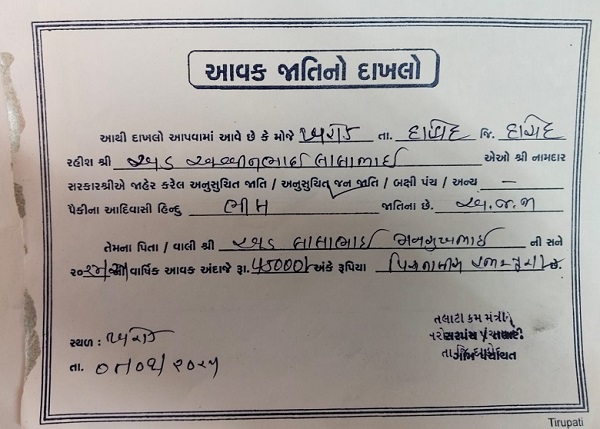 આવક જાતિનો દાખલો
આથી દાખલો આપવામાં આવે છે કે મોજે ખરોડ તા. દાહોદ જિ. દાહોદ
રહીશ શ્રી લાલાભાઇ એઓ શ્રી નામદાર
સરકારશ્રીએ જાહેર કરેલ અનુસુચિત જાતિ / અનુસુચિત જન જાતિ / બક્ષી પંચ / અન્ય —
પૈકીના આદિવાસી હિન્દુ ભીલ જાતિના છે. અ.જ.જા
તેમના પિતા / વાલી શ્રી લાલાભાઇ મનસુખભાઇ ની સને
વાર્ષિક આવક અંદાજે રૂા. 45000/ અંકે રૂપિયા પિસ્તાલીસ હજાર પુરા છે.
તલાટી કમ મંત્રી
સ્થળ : ખરોડ
તા.
Tirupati